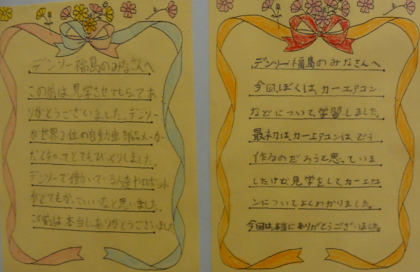 デンソー福島のみなさんへ
この前は見学させてもらってあ
りがとうございました。デンソー
が世界2位の自動車部品メーカー
だと知ってとてもびっくりしました。
デンソーで働いている人達やロボット
がとてもかっていいなと思いました。
この前は本当にありがとうございました
デンソー福島のみなさんへ
今回ぼくは、カーエアコン
などについて学習しました。
最初は、カーエアコンは、どう
作るのだろうと思っていま
したけど、見学をして、カーエアコ
ンについてよくわかりました。
今回は、本当にありがとうございました。